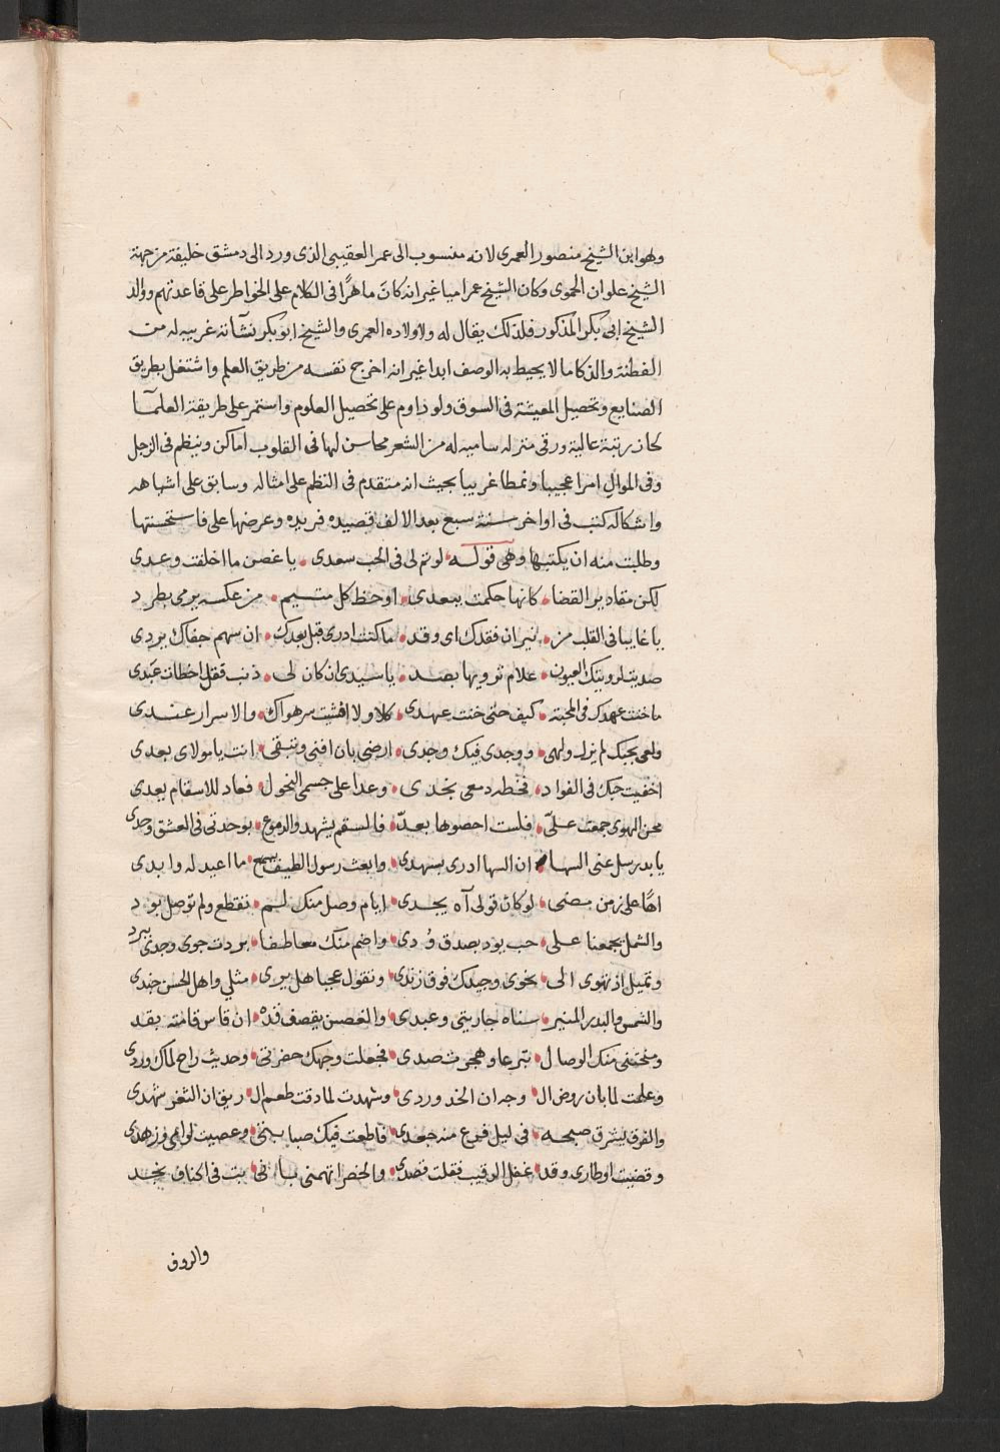 وهو ابن الشيخ منصور العمري لانه منسوب الى عمر العقيبى الذى ورد الى دمشق خليفة من جهة
الشيخ علوان الحموى وكان الشيخ عمر اميا غير انه كان ماهرًا فى الكلام على الخواطر على قاعدتهم ووالد
الشيخ ابى بكر المذكور فلذلك يقال له ولاولاده العمرى والشيخ ابو بكر نشأ نه غريبه له من
الفطنة والذكا ما لا يحيط به الوصف ابدا غير انه اخرج نفسه من طريق العلم واشتغل بطريق
الصنايع وتحصيل المعيشة فى السوق ولو داوم على تحصيل العلوم واستمر على طريقة العلمآ
لحاز رتبة عالية ورقى منزله ساميه له من الشعر محاسن لها فى القلوب اماكن وينظم فى الزجل
وفى الموال امرا عجيبا ونمطا غريبا بحيث انه متقدم فى النظم على امثاله وسابق على اشباهه
واشكاله كتب فى اواخر سنة سبع بعد الالف قصيده فريده وعرضها على فاستحسنتها
وطلبت منه ان يكتبها وهى قوله لو تم لى فى الحب سعدى يا غصن ما اخلفت وعدى
لكن مقادير القضا كانها حكمت ببعدى او حظ كل متيم من عكسه يرمى بطرد
يا غايبا فى القلب من نيران فقدك اى وقد ما كنت ادرى قبل بعدك ان سهم جفاك يردى
صديت لرويتك العيون علام ترويها بصد يا سيدى ان كان لى ذنب فقل اخطات عبدى
ما خنت عهدك فى المحبة كيف حتى خنت عهدى كلا ولا افشيت سر هواك والاسرار عندى
ولعى بحبك لم يزل ولهى ووجدى فيك وجدى ارضى بان افنى وتبقى انت يا مولاى بعدى
اخفيت حبك فى الفواد فخطه دمعى بخدى وعدا على جسمى النحول فعاد للاسقام يعدى
محن الهوى جمعت علىّ فلست احصوها بعدّ فالسقم يشهد والدموع بوحدتى فى العشق وحدى
يا بدر سل عنى السها ان السها ادرى بسهدى وابعث رسول الطيف يسمع ما اعيد له وابدى
اهًا على زمن مضى لو كان قولى آه يجدى ايام وصل منك لم تقطع ولم توصل بود
والشمل يجمعنا على حب يود بصدق وُدى واضم منك معاطفا بردت جوى وجدى ببرد
وتميل اذ تهوى الى نحوى وجيدك فوق زندى وتقول عجبا هل يرى مثلى واهل الحسن جندى
والشمس والبدر المنير سناه جاريتى وعبدى والغصن يقصف قده ان قاس قامته بقد
ومنحتنى منك الوصال تبرعا وهجرت صدى فجعلت وجهك حضرتى وحديث راح لماك وردى
وعلمت لما بان روض ال وجه ان الخد وردى وشهدت لما دقت طعم ال ريق ان الثغر شهدى
والفرق يشرق صبحه فى ليل فرع منه جعدى فاطعت فيك صبابتى وعصيت لوامى وزهدى
وقضيت اوطارى وقد غفل الرقيب فقلت قصدى والخصر اتهمنى بانى بت فى اكناف نجد
والروق